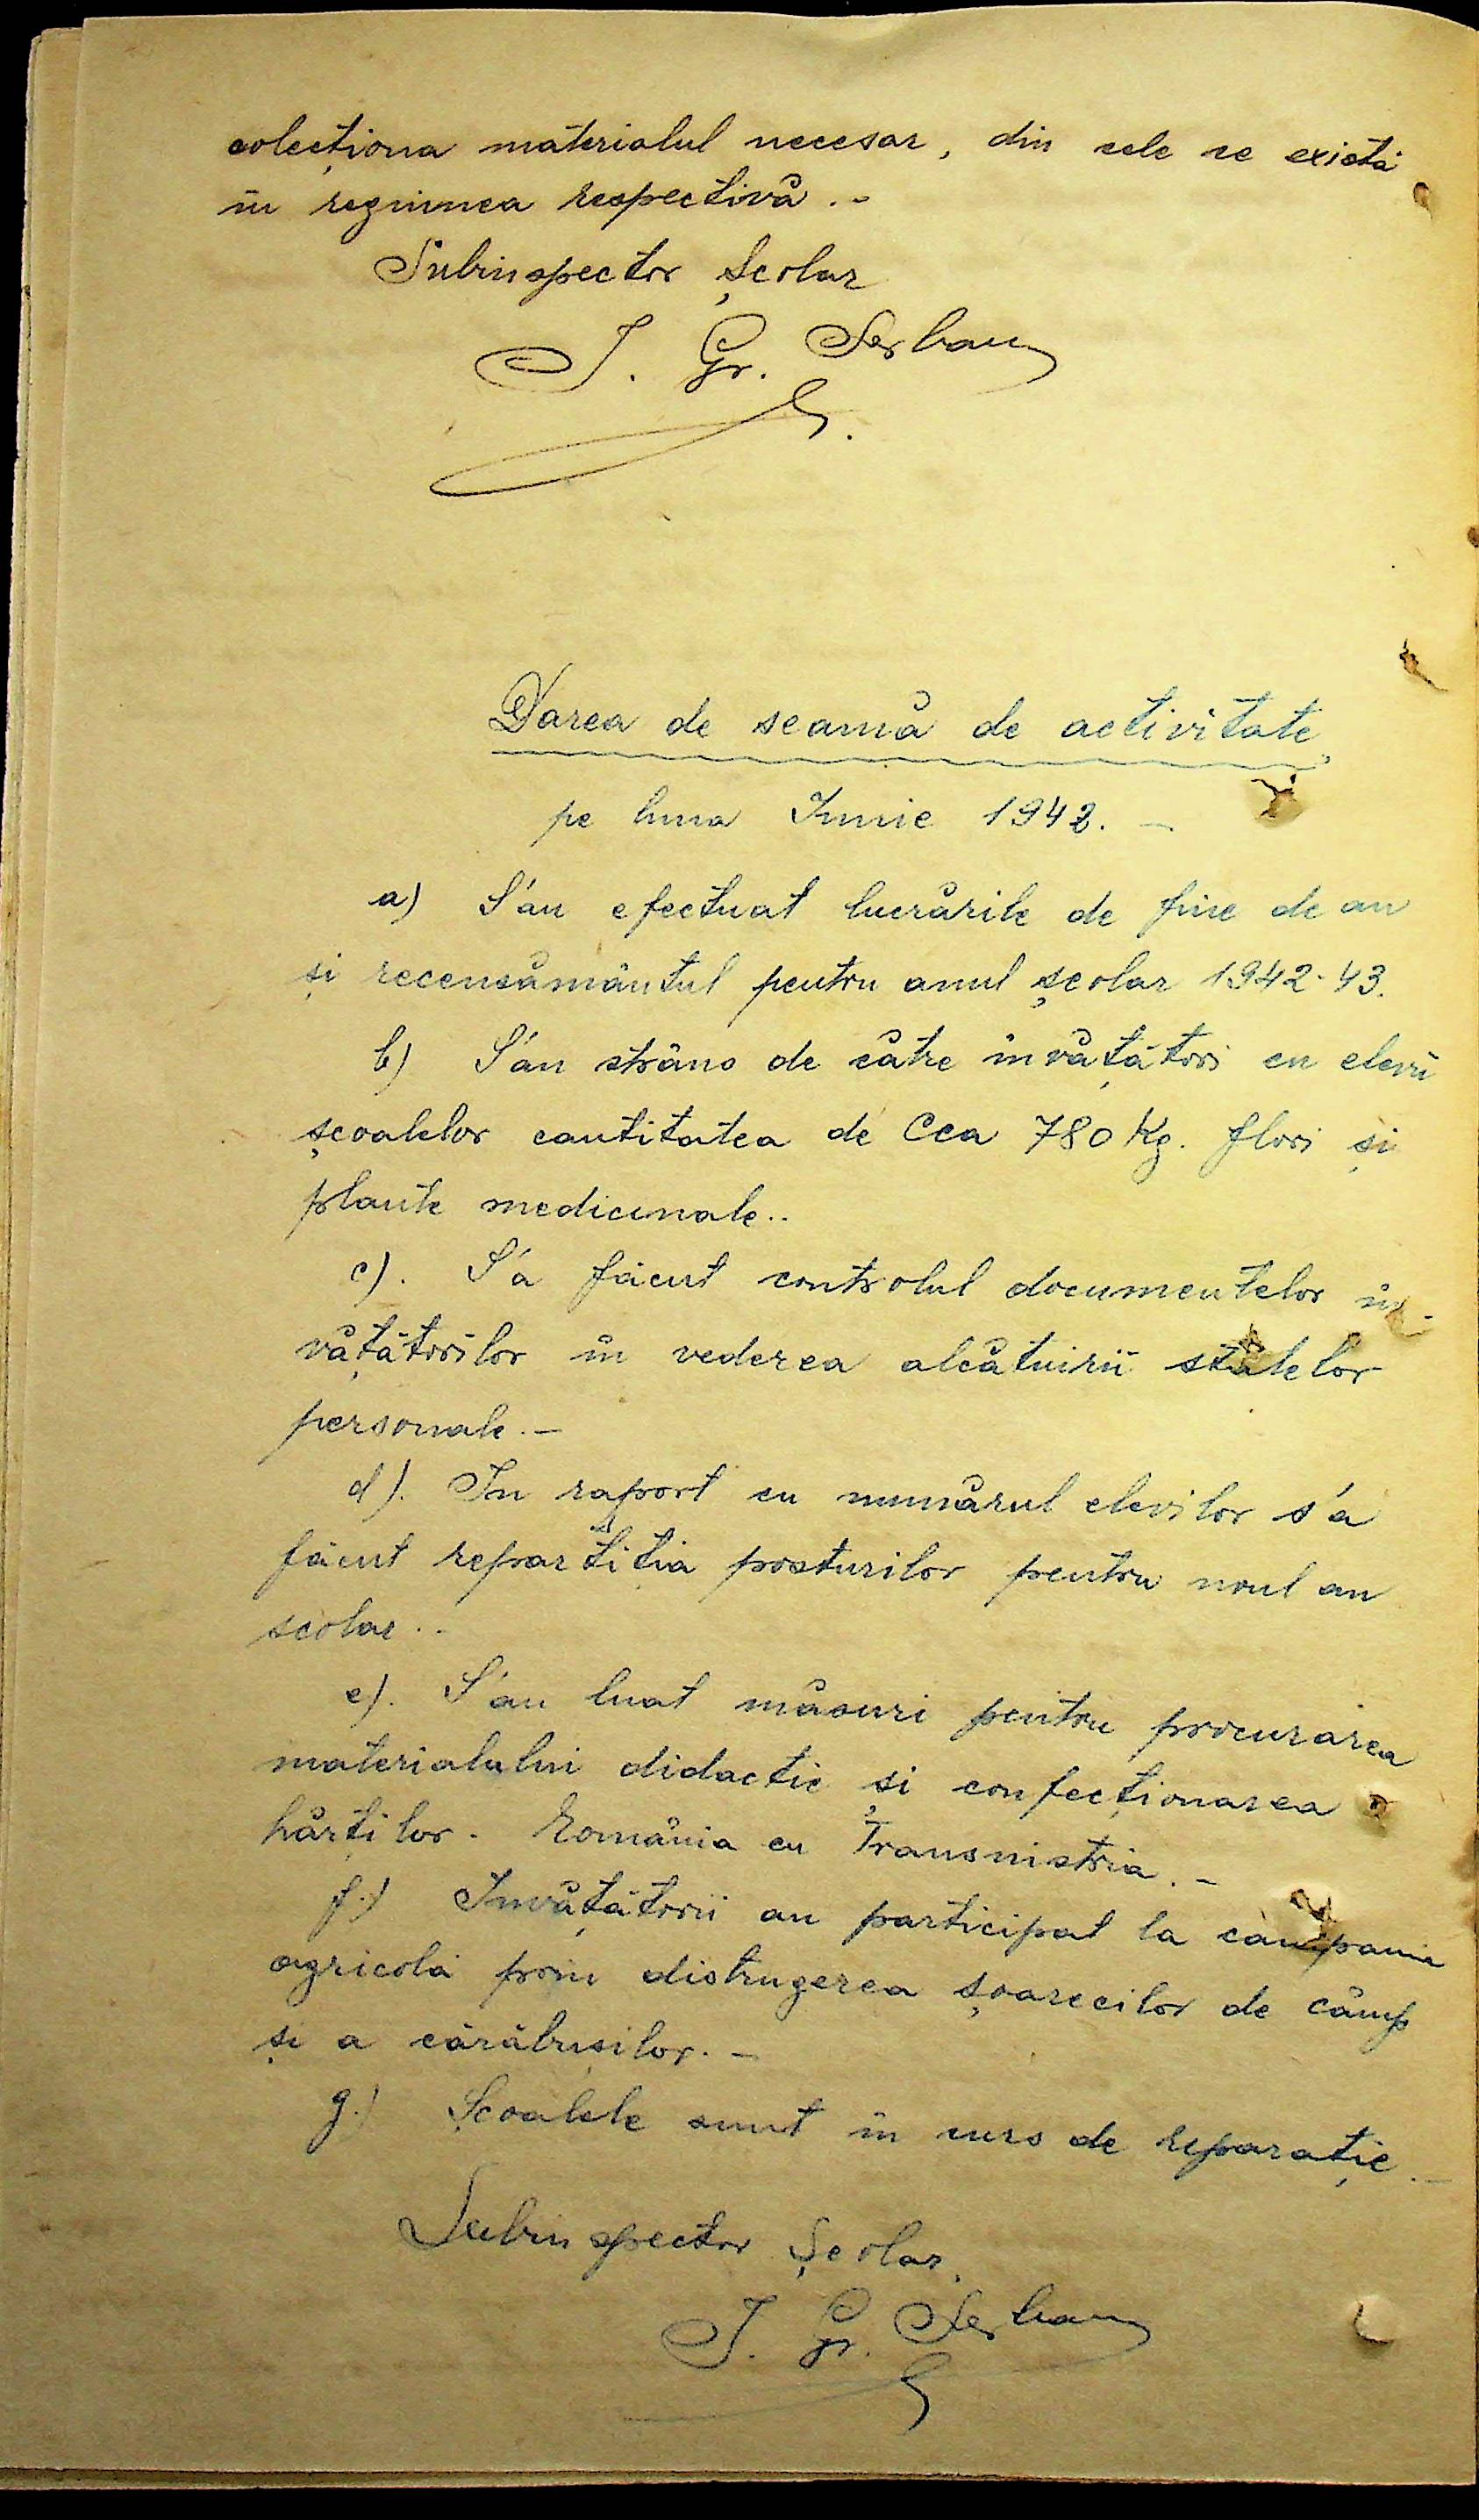 colecționa materialul necesar, din cele ce există
în regiunea respectivă.-
Subinspector școlar
I. Gr. Șerban
Darea de seamă de activitate
pe luna Iunie 1942. -
a) S'au efectuat lucrările de fine de an
și recensământul pentru anul școlar 1942-43.
b) S'au strâns de către învățători cu elevii
școalelor cantitatea de Cca 780 Kg. flori și
plante medicinale..
c). S'a făcut controlul documentelor în-
vățătorilor în vederea alcătuirii statelor
personale.-
d). In raport cu numărul elevilor s'a
făcut repartiția posturilor pentru noul an
scolar..
e). S'au luat măsuri pentru procurarea
materialului didactic și confecționarea
hărților. România cu Transnistria.-
f.) Invățătorii au participat la campania
agricolă prin distrugerea șoarecilor de câmp
și a cărăbușilor.-
g.) Școalele sunt în curs de reparație.-
Subinspector Școlar,
I. Gr. Șerban